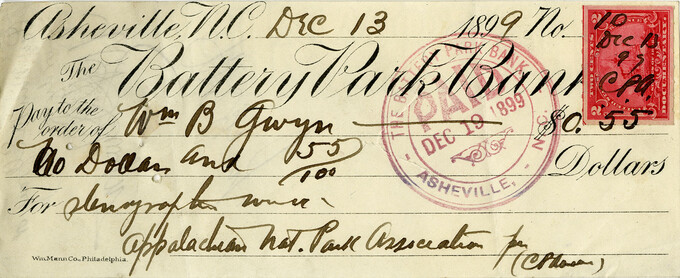 Asheville, N.C. Dec 13 1899 No.
The Battery Park Bank
Pay to the order of Wm B Gwyn $0.55
No Dollars and 55/100 Dollars
For stenographer
Appalachian Nat. Park Association per
Wm. Mann Co., Philadelphia.
THE BATTERY PARK BANK
PAID
DEC 19 1899
ASHEVILLE, N.C.
TWO CENTS
DOCUMENTARY
2
2
Dec 13